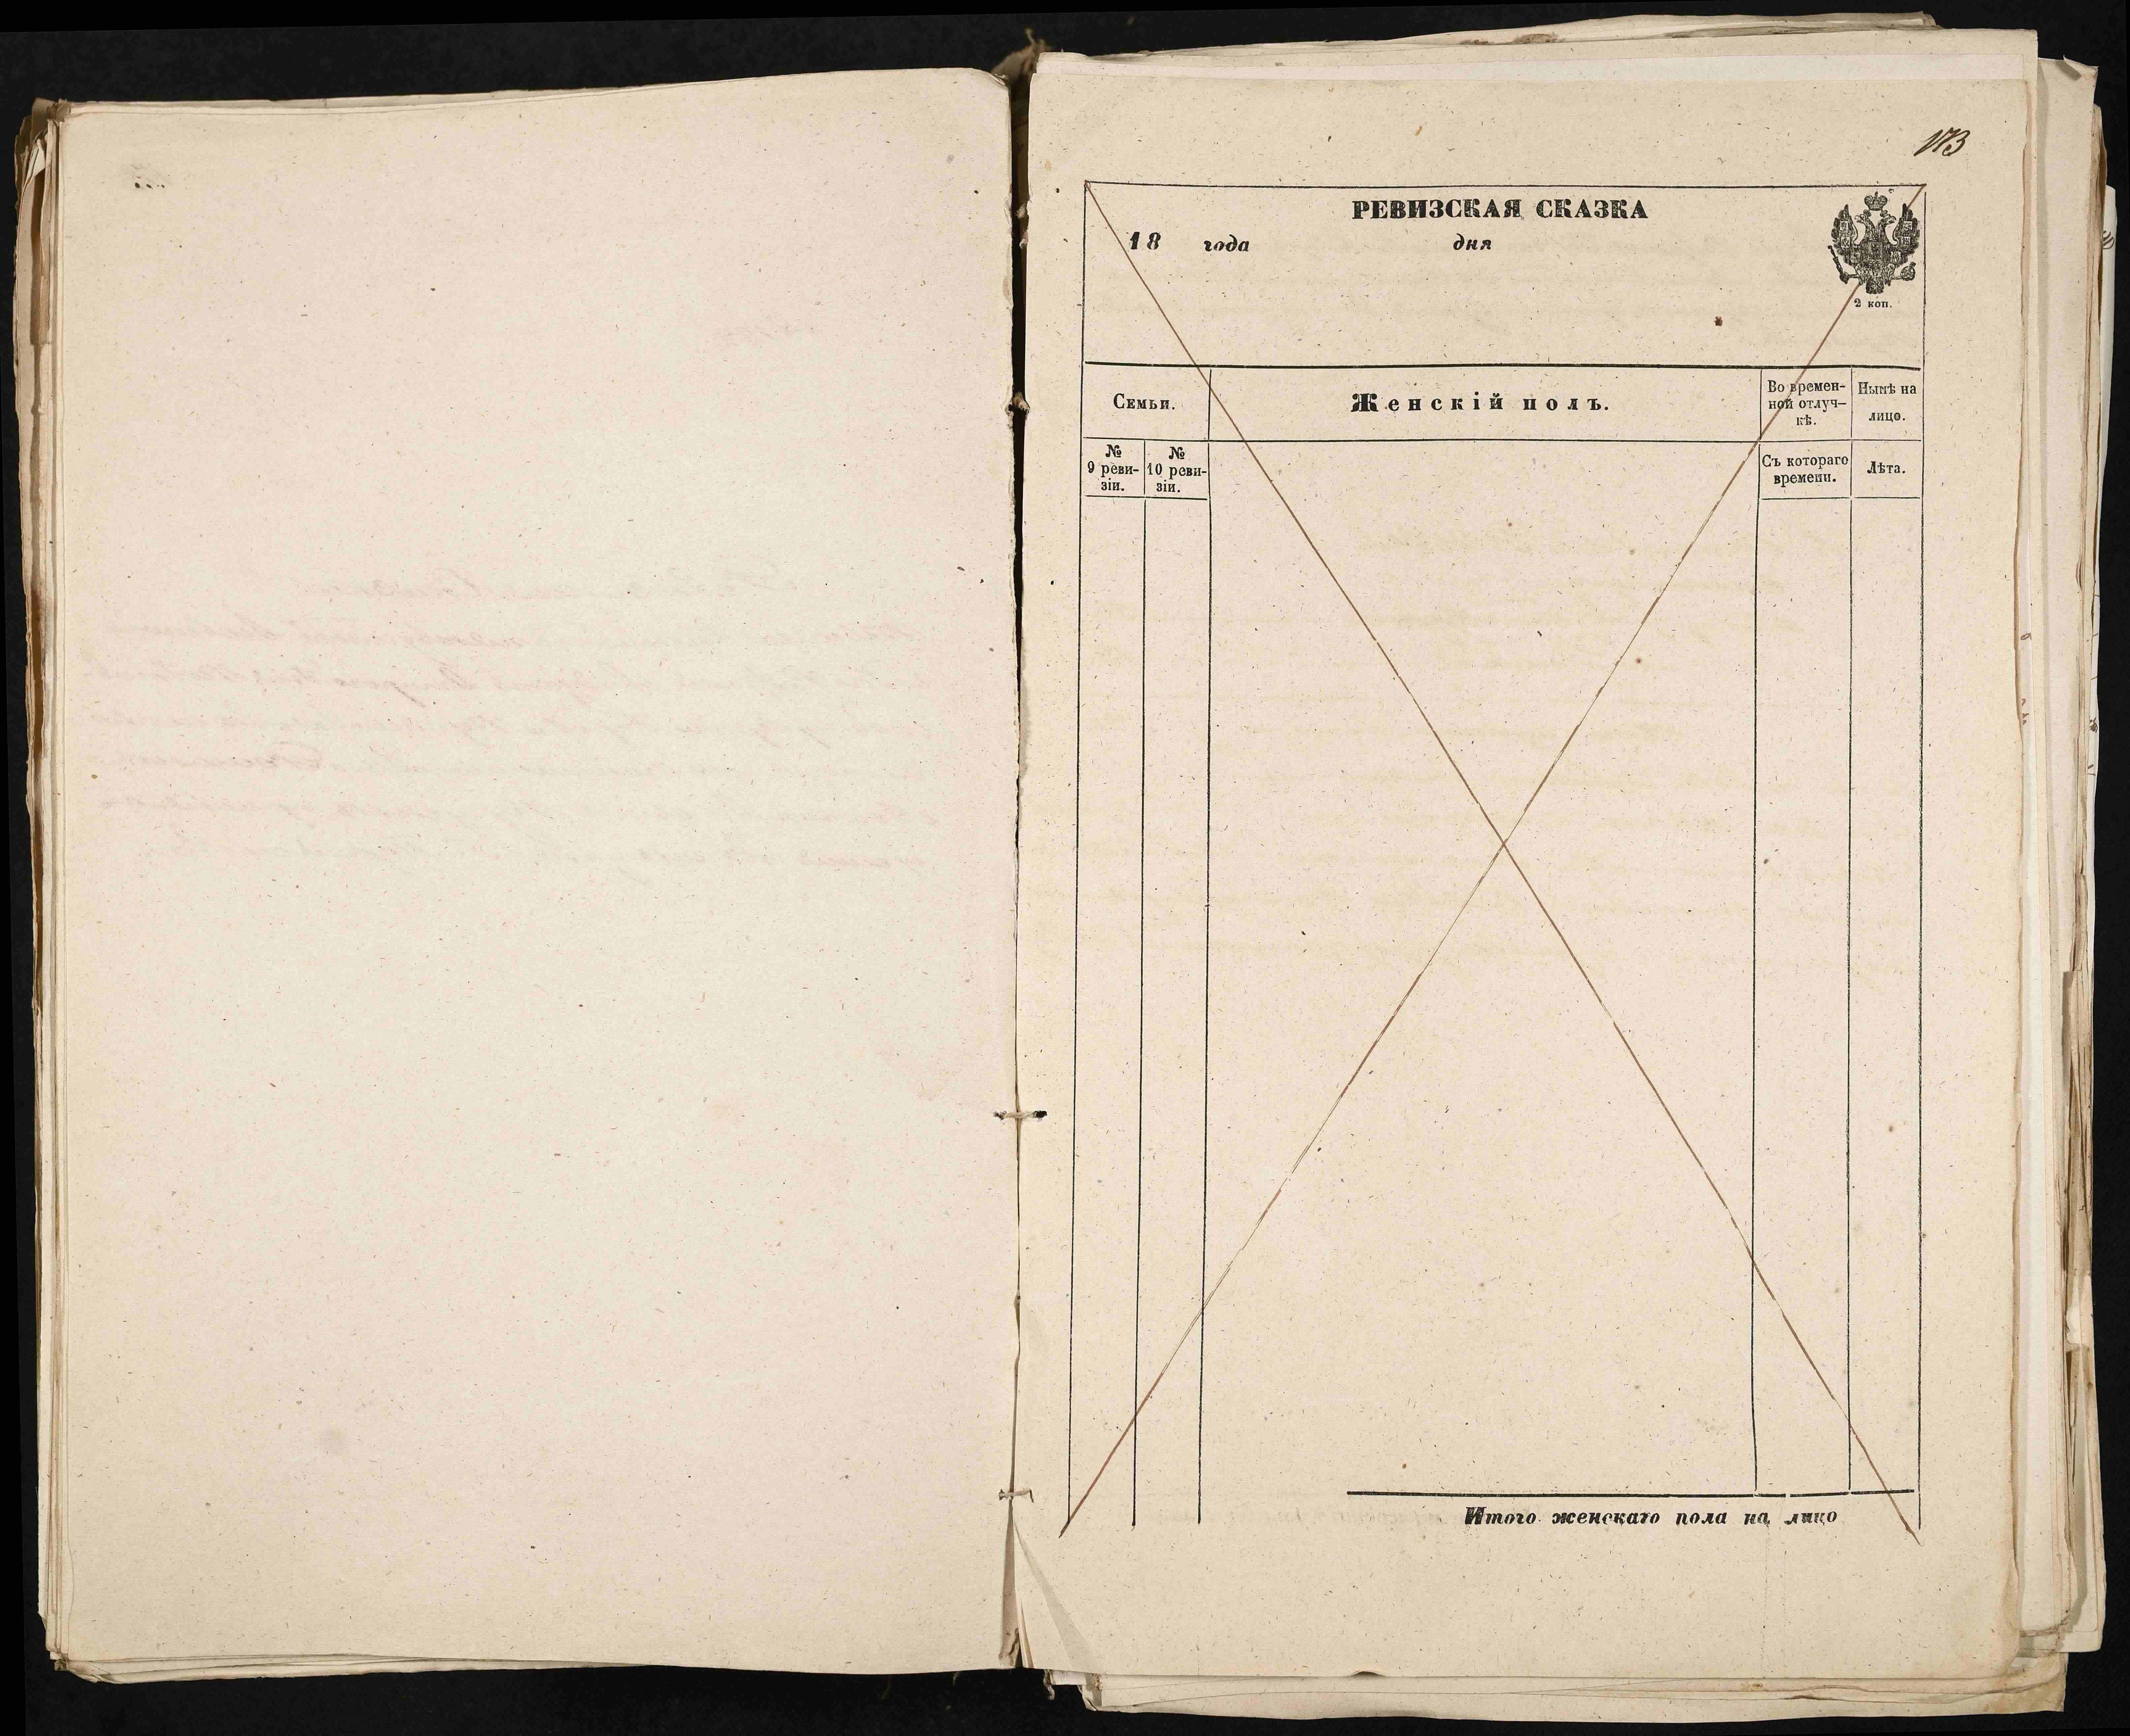 173
РЕВИЗСКАЯ СКАЗКА
18 года дня
2 коп.
Семьи.
Женскій полъ.
Во времен-
ной отлуч-
кѣ.
Нынѣ на
лицо.
№
9 реви-
зіи.
№
10 реви-
зіи.
Съ котораго
времени.
Лѣта.
Итого женскаго пола на лицо